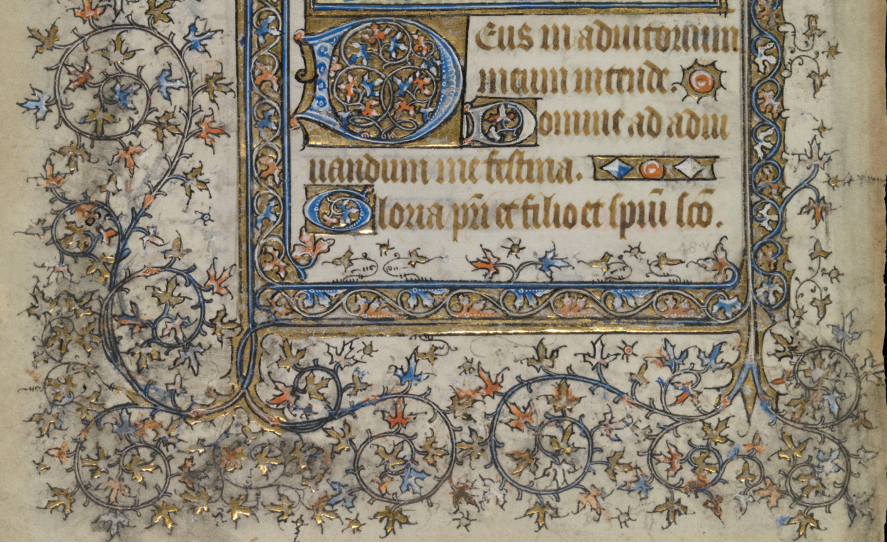 Deus in adiutorium
meum intende.
Domine ad adiu
uandum me festina.
Gloria pr̄i et filio et spiũi sc̄o.